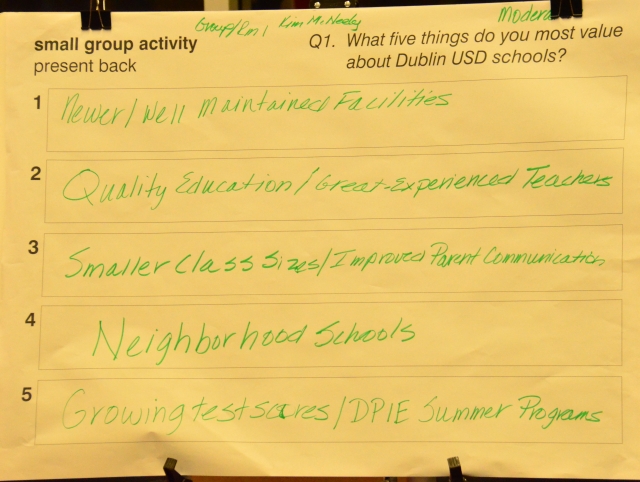 Group/Rm 1 Kim M. Neely Modera
small group activity
present back
Q1. What five things do you most value
about Dublin USD schools?
1 Newer/Well Maintained Facilities
2 Quality Education/Great-Experienced Teachers
3 Smaller Class Sizes/Improved Parent Communication
4 Neighborhood Schools
5 Growing test scores/DPIE Summer Programs